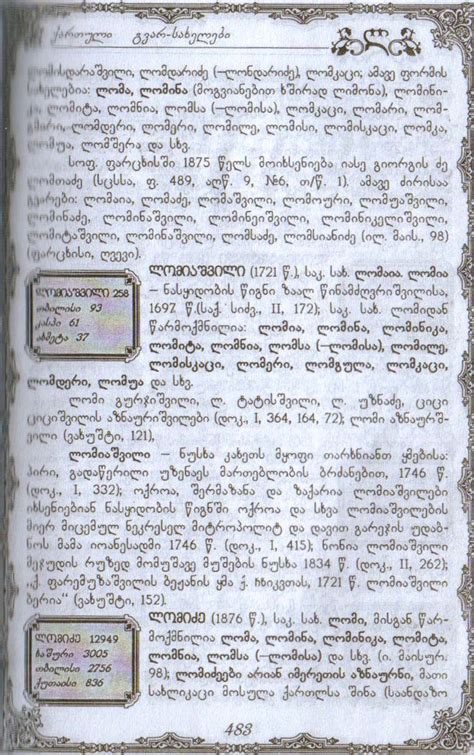 ქართული გვარ-სახელები
ლომისდარაშვილი, ლომდარიძე (–ლონდარიძე), ლომკაცი; ამავე ფორმის
სახელებია: ლომა, ლომინა (მოგვიანებით ხშირად ლიმონა), ლომინი-
კა, ლომიტა, ლომნია, ლომსა (–ლომისა), ლომკაცი, ლომარი, ლომ-
ლომდერი, ლომერი, ლომილე, ლომისი, ლომისკაცი, ლომკა,
ლომუა, ლომშერა და სხვ.
სოფ. ფარცხისში 1875 წელს მოიხსენიება იასე გიორგის ძე
ლომთაძე (სცსსა, ფ. 489, აღწ. 9, №6, თ/წ. 1). ამავე ძირისაა
გვარები: ლომაია, ლომაძე, ლომაშვილი, ლომოური, ლომუაშვილი,
ლომინაძე, ლომინაშვილი, ლომინეიშვილი, ლომინიკელიშვილი,
ლომიტაშვილი, ლომინაშვილი, ლომსაძე, ლომსიანიძე (ილ. მაის., 98)
(ფარცხისი, ღვევი).
ლომიაშვილი (1721 წ.), საკ. სახ. ლომაია. ლომია
– ნასყიდობის წიგნი ზაალ წინამძღვრიშვილისა,
1697 წ.(საქ. სიძვ., II, 172); საკ. სახ. ლომიდან
წარმოქმნილია: ლომია, ლომინა, ლომინიკა,
ლომიტა, ლომნია, ლომსა (–ლომისა), ლომილე,
ლომისკაცი, ლომერი, ლომგულა, ლომკაცი,
ლომდერი, ლომუა და სხვ.
ლომიაშვილი 258
თბილისი 93
კასპი 61
ახმეტა 37
ლომი გურჯიშვილი, ლ. ტატისშვილი, ლ. უზნაძე, ციცი
ციციშვილის აზნაურიშვილები (დოკ., I, 364, 164, 72); ლომი აზნაურშ-
ვილი (ვახუშტი, 121).
ლომიაშვილი – ნუსხა კახეთს მყოფი თარხნიანთ ყმებისა:
პირი, გადაწერილი უზენაეს მართებლობის ბრძანებით, 1746 წ.
(დოკ., I, 332); ოქროა, შერმაზანა და ზაქარია ლომიაშვილები
იხსენიებიან ნასყიდობის წიგნში ოქროა და სხვა ლომიაშვილების
მიერ მიცემულ ნეკრესელ მიტროპოლიტ და დავით გარეჯის უდაბ-
ნოს მამა იოანესადმი 1746 წ. (დოკ., I, 415); ნონია ლომიაშვილი
მეჯუდის რუზედ მომუშავე მუშების ნუსხა 1834 წ. (დოკ., II, 262);
„ქ. ფარემუზაშვილის ბეჟანის ყმა ქ. ჩხიკვთას, 1721 წ. ლომიაშვილი
ბერია“ (ვახუშტი, 152).
ლომიძე (1876 წ.), საკ. სახ. ლომი, მისგან წარ-
მოქმნილია ლომა, ლომინა, ლომინიკა, ლომიტა,
ლომნია, ლომსა (–ლომისა) და სხვ. (ი. მაისურ.
98); ლომიძეები არიან იმერეთის აზნაურნი, მათი
სახლიკაცი მოსულა ქართლსა შინა (საანდაზო
ლომიძე 12949
ხაშური 3005
თბილისი 2756
ქუთაისი 836
483